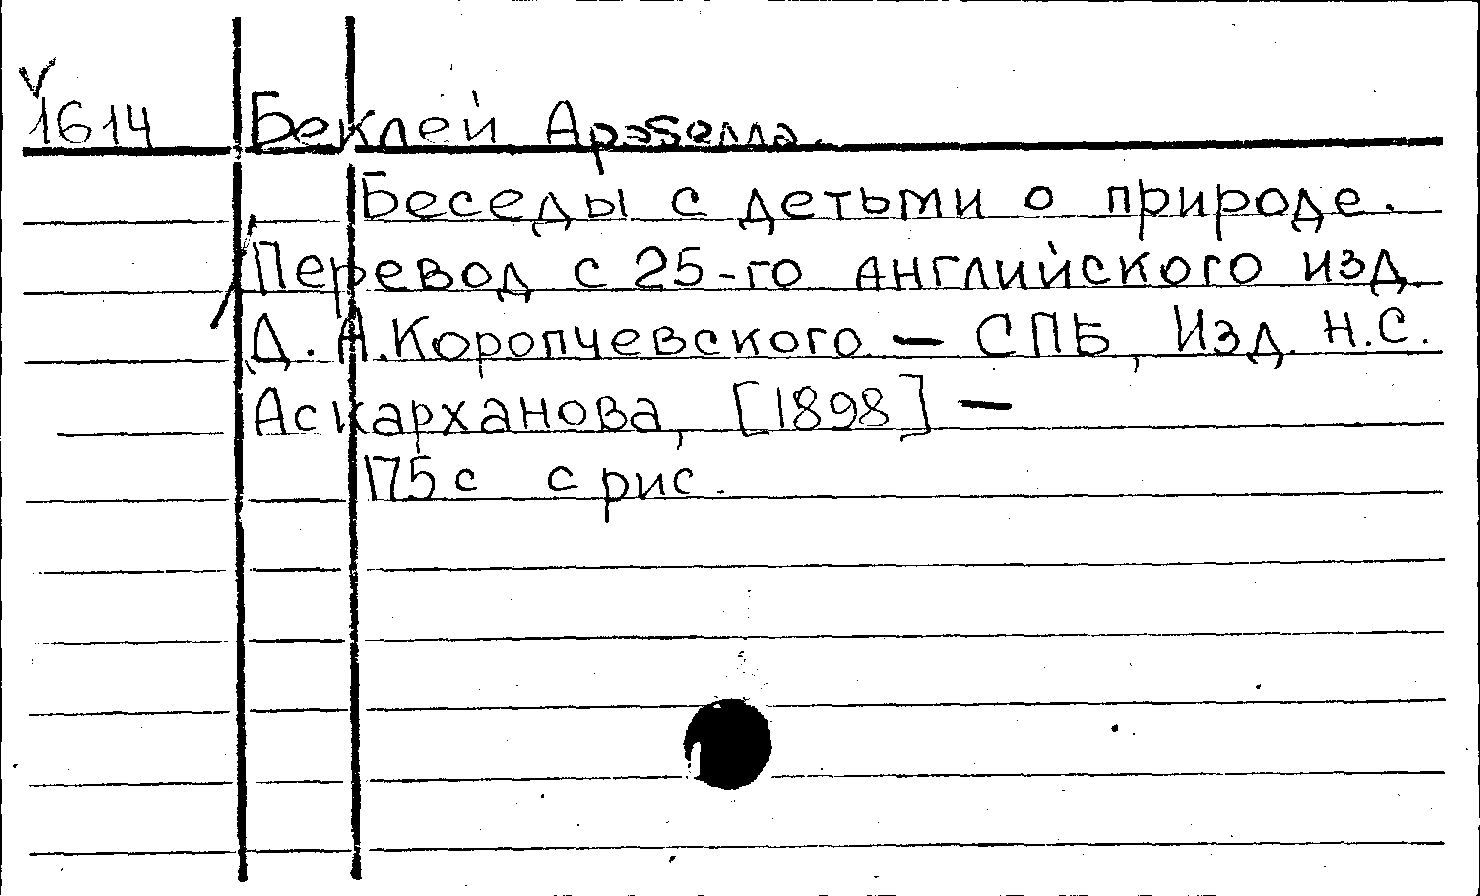 V
1614 Беклей Арабелла.
Беседы с детьми о природе.
Перевод с 25-го английского изд.
Д. А. Коропчевского — СПБ, Изд. Н.С.
Аскарханова, [1898] —
175 с с рис.